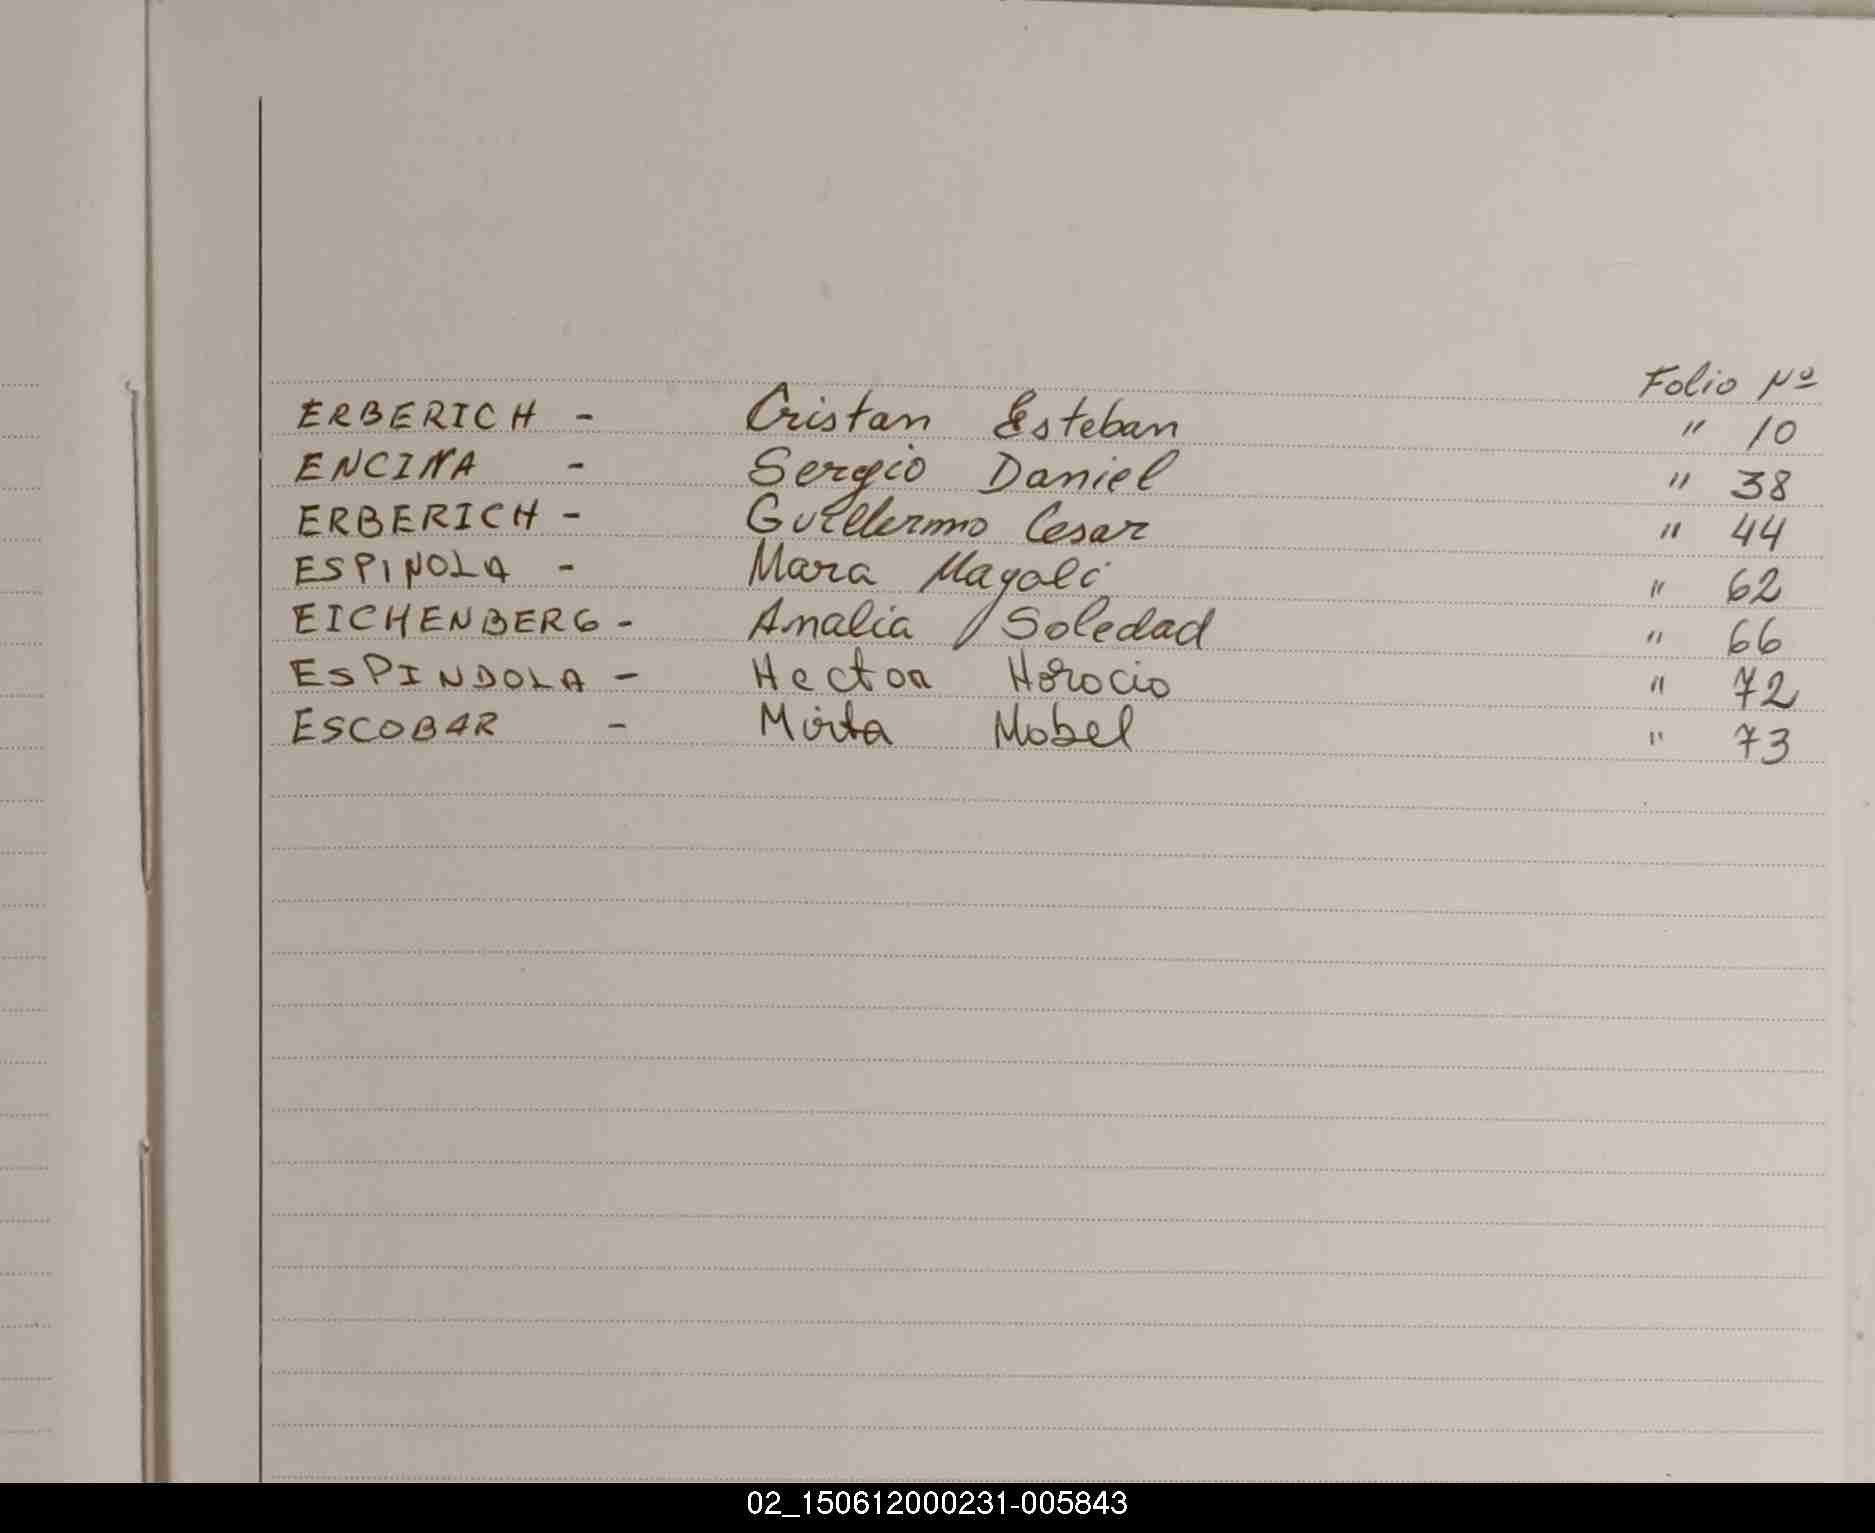 Folio Nº
ERBERICH - Cristan Esteban " 10
ENCINA - Sergio Daniel " 38
ERBERICH - Guillermo Cesar " 44
ESPINOLA - Mara Magali " 62
EICHENBERG - Analia Soledad " 66
ESPINDOLA - Hector Horocio " 72
ESCOBAR - Mirta Mabel " 73
02_150612000231-005843